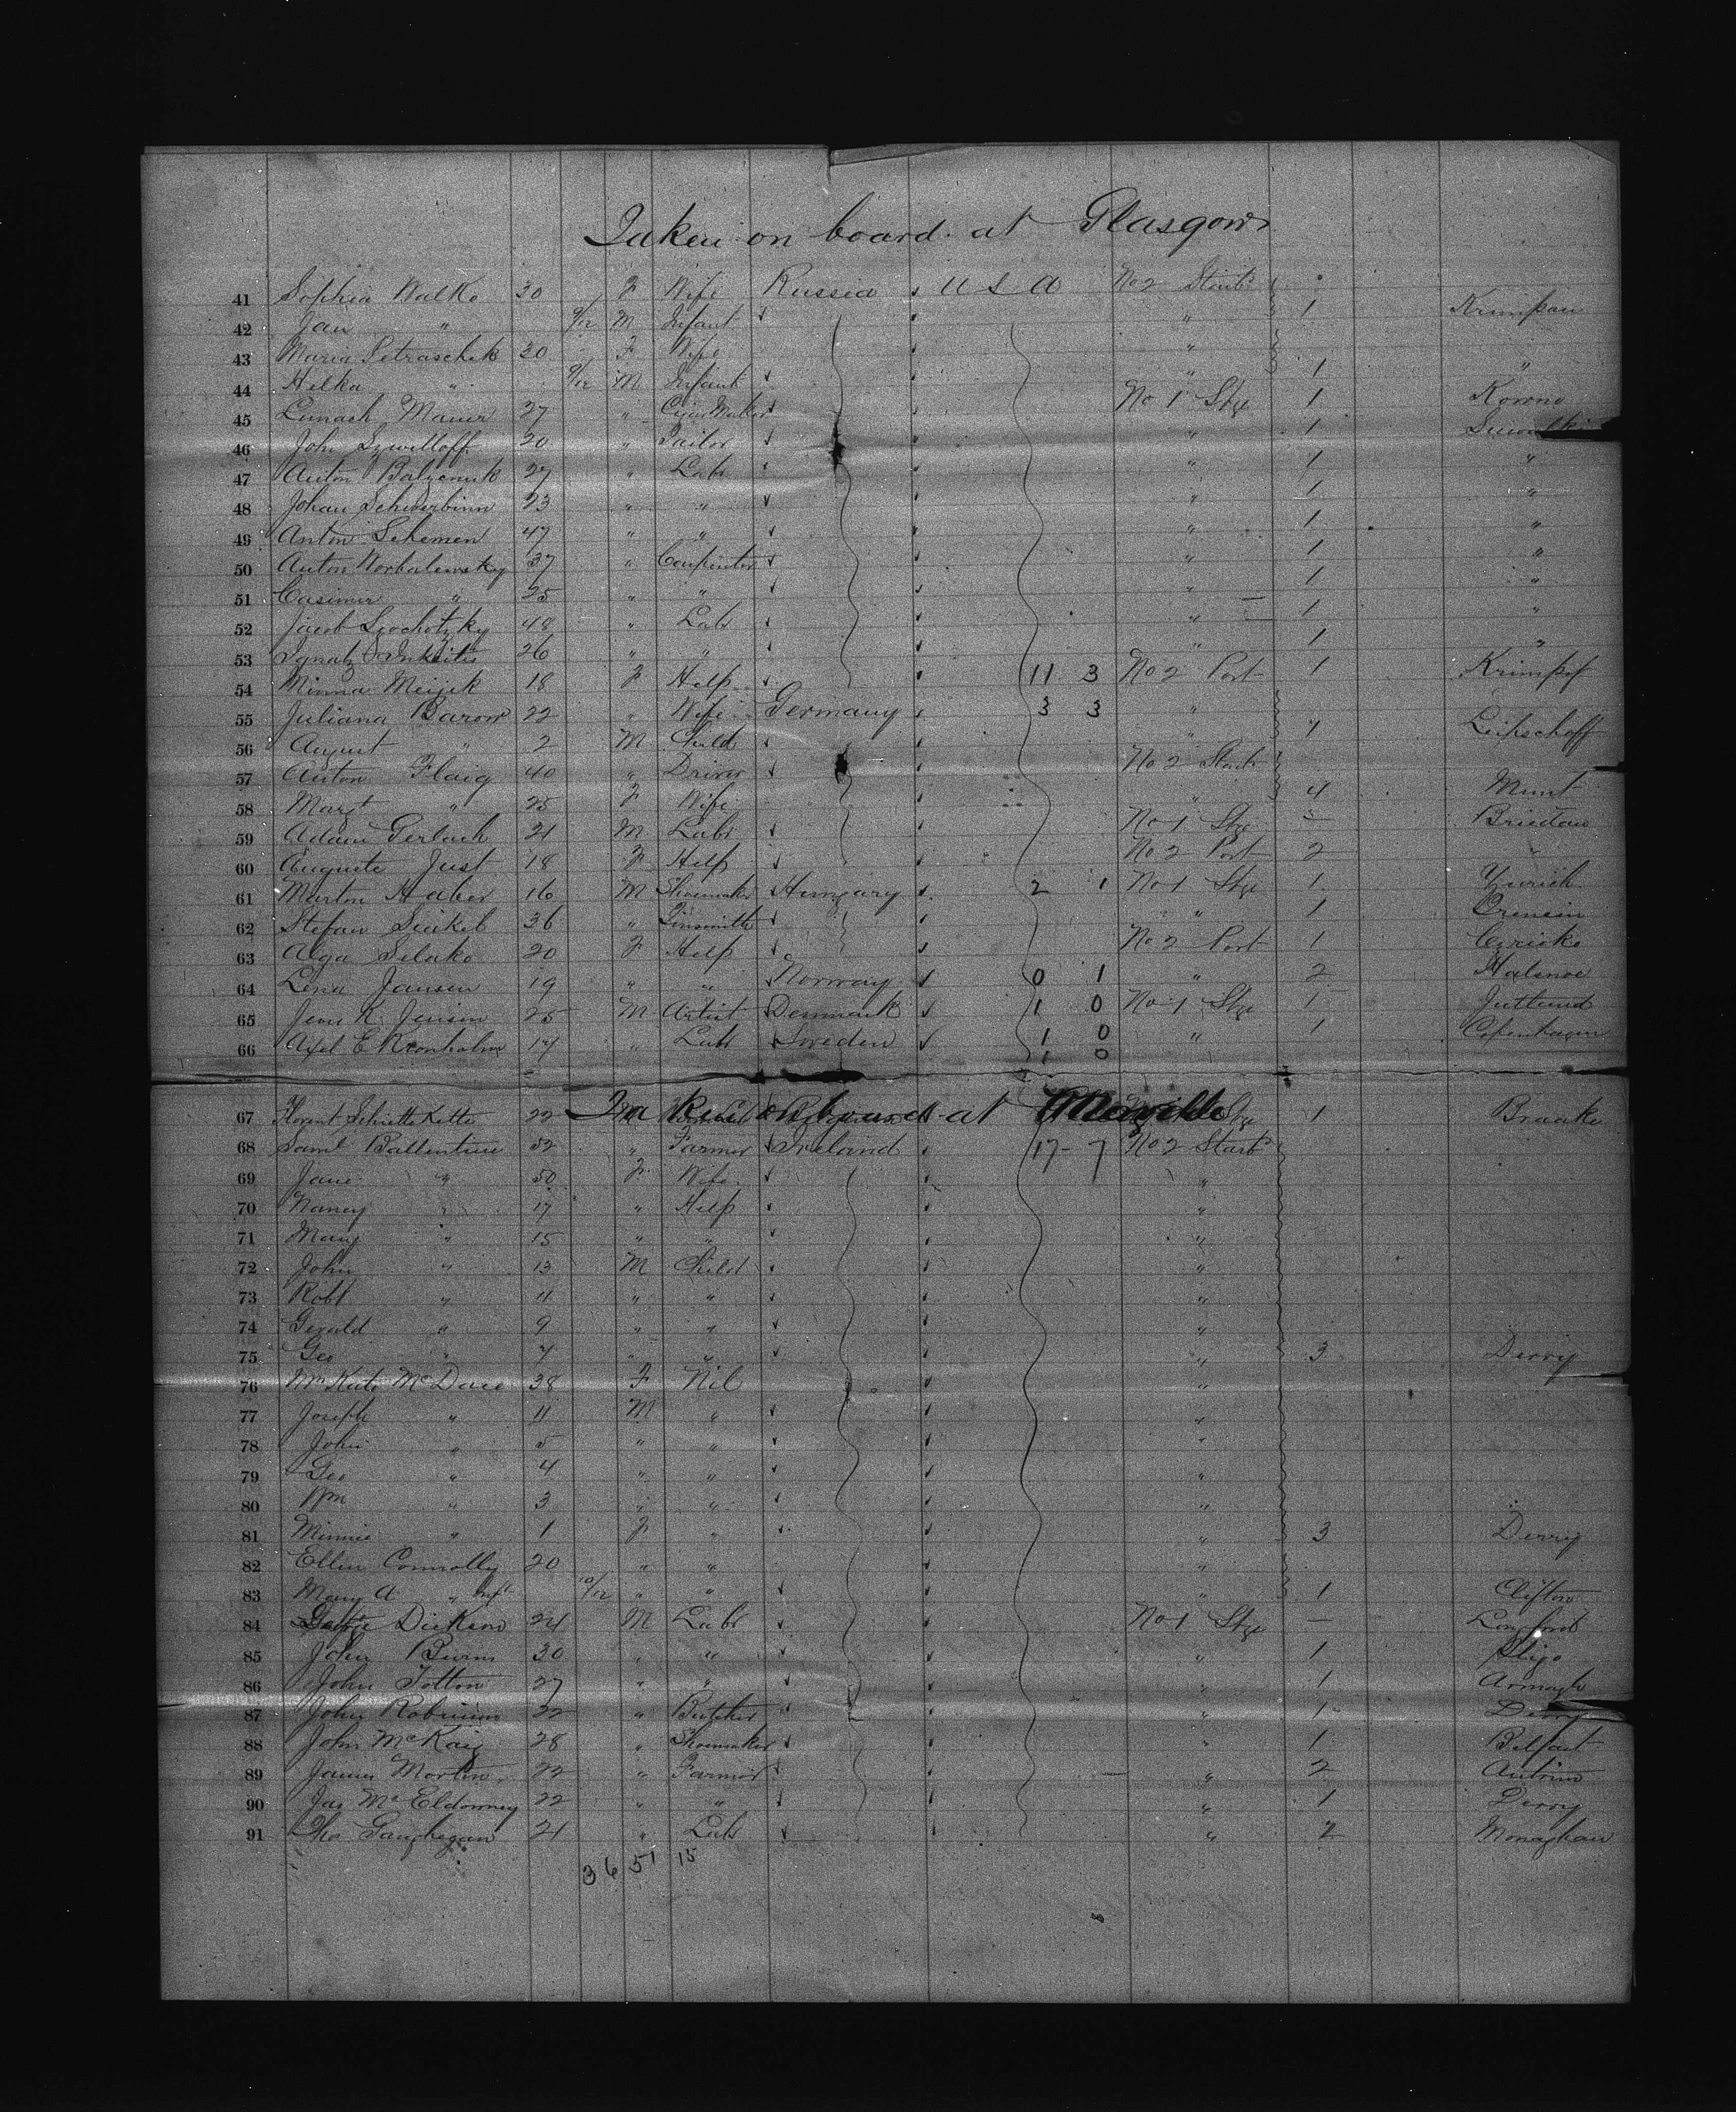 Taken on board at Glasgow
41 Sophia Walko 30 F Wife Russia U S A No 2 Starb
42 Jan " 9/12 M Infant " 1 Krimpau
43 Maria Petraschek 30 F Wife "
44 Helka " 9/12 M Infant " 1 "
45 Mauer 27 " Cigar Maker No 1 Stge 1 Kowno
46 John 20 " Tailor " 1
47 Anton 27 " Labr " 1 "
48 Johan 23 " " " 1 "
49 Anton Schemen 47 " " " 1 "
50 Anton 37 " Carpenter " 1 "
51 Casimir " 25 " " " 1 "
52 Jacob 48 " Labr " 1 "
53 Ignatz 26 " " " 1 "
54 Minna Meijek 18 F Help 11 3 No 2 Port 1 Krimpf
55 Juliana Barow 22 " Wife Germany 3 3 "
56 August " 2 M Child " 1 Leikschoff
57 Anton Flaig 40 " Driver No 2 Starb
58 Margt " 25 F Wife " 4 Munt
59 Adam Gerlach 21 M Labr No 1 Stge
60 Auguste Just 18 F Help No 2 Port 2
61 Marton Haber 16 M Shoemaker Hungary 2 1 No 1 Stge 1
62 Stefan 36 " Tinsmith " 1
63 Alga 20 F Help No 2 Port 1
64 Lena Jansen 19 " " Norway 0 1 " 2 Halsnoe
65 Jens K Jensen 25 M Artist Denmark 1 0 No 1 Stge 1 Jutland
66 Axel E Kronholm 17 " Labr Sweden 1 0 " 1 Copenhagen
1 0
Taken on board at Moville
67 22 M Stge 1 Braake
68 Saml Ballentine 52 " Farmer Ireland 17 - 7 No 2 Starb
69 Jane " 50 F Wife "
70 Nancy " 17 " Help "
71 Mary " 15 " " "
72 John " 13 M Child "
73 Robt " 11 " " "
74 Gerald " 9 " " "
75 Geo " 7 " " " 3 Derry
76 Mrs Kate McDave 38 F Nil "
77 Joseph " 11 M " "
78 John " 5 " " "
79 Geo " 4 " " "
80 Wm " 3 " " "
81 Minnie " 1 F " " 3 Derry
82 Ellen Connolly 20 " " "
83 Mary A " Inft 10/12 " " " 1 Clifton
84 Dickson 24 M Labr No 1 Stge — Longford
85 John Burns 30 " " " 1 Sligo
86 John Totton 27 " " " 1 Armagh
87 John Robinson 22 " Butcher " 1 Derry
88 John McKaig 28 " Shoemaker " 1 Belfast
89 James Morton 22 " Farmer " 2 Antrim
90 Jas McEldowney 22 " " " 1 Derry
91 Tho Gaughegan 21 " Labr " 2 Monaghan
36 51 15